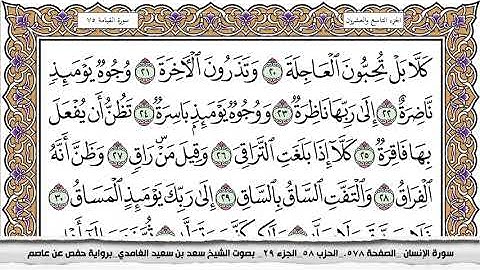 الجزء التاسع والعشرون
سورة القيامة ٧٥
كَلَّا بَلْ تُحِبُّونَ ٱلْعَاجِلَةَ ٢٠ وَتَذَرُونَ ٱلْأَخِرَةَ ٢١ وُجُوهٌ يَوْمَئِذٍ
نَّاضِرَةٌ ٢٢ إِلَىٰ رَبِّهَا نَاظِرَةٌ ٢٣ وَوُجُوهٌ يَوْمَئِذٍ بَاسِرَةٌ ٢٤ تَظُنُّ أَن يُفْعَلَ
بِهَا فَاقِرَةٌ ٢٥ كَلَّا إِذَا بَلَغَتِ ٱلتَّرَاقِيَ ٢٦ وَقِيلَ مَنْ رَاقٍ ٢٧ وَظَنَّ أَنَّهُ
ٱلْفِرَاقُ ٢٨ وَٱلْتَفَّتِ ٱلسَّاقُ بِٱلسَّاقِ ٢٩ إِلَىٰ رَبِّكَ يَوْمَئِذٍ ٱلْمَسَاقُ ٣٠
سورة الإنسان _الصفحة ٥٧٨_ الحزب ٥٨_الجزء ٢٩_ بصوت الشيخ سعد بن سعيد الغامدي_برواية حفص عن عاصم